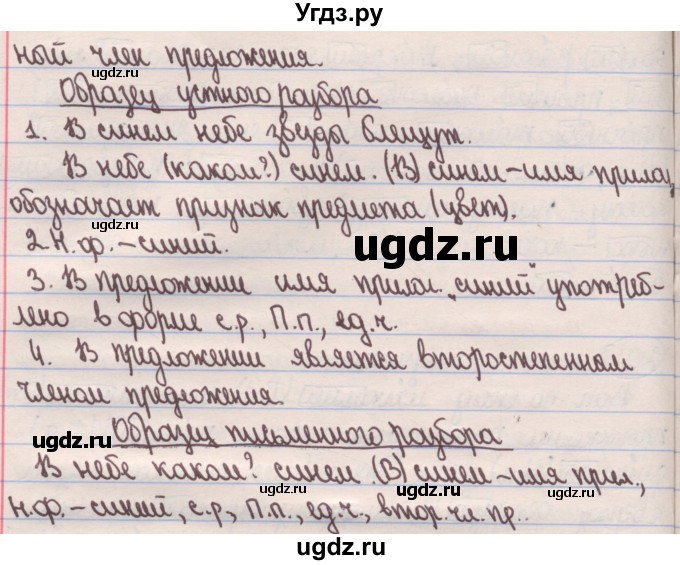 Угдз.ру
ный член предложения.
ugdz.ru
Образец устного разбора
ugdz.ru
1. В синем небе звезды блещут.
В небе (каком?) синем. (В) синем – имя прилаг,
обозначает признак предмета (цвет).
ugdz.ru
2. Н.ф. – синий.
ugdz.ru
3. В предложении имя прилаг. "синий" употреб-
лено в форме с.р., П.п., ед.ч.
ugdz.ru
4. В предложении является второстепенным
членом предложения.
ugdz.ru
Образец письменного разбора
ugdz.ru
В небе каком? синем. (В) синем – имя прил.,
ugdz.ru
ugdz.ru
Н.ф. – синий, с.р., П.п., ед.ч., втор. чл. пр..
ugdz.ru